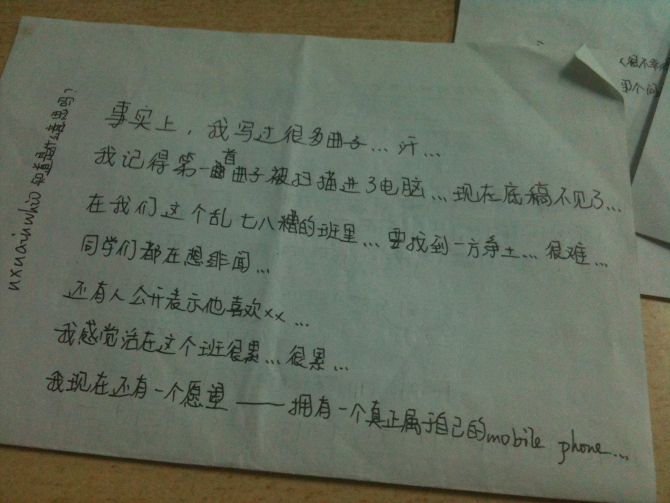 事实上，我写过很多曲子…汗…
我记得第一首曲子被扫描进了电脑…现在底稿不见了…
在我们这个乱七八糟的班里…要找到一方净土…很难…
同学们都在想绯闻…
还有人公开表示他喜欢xx…
我感觉活在这个班很累…很累…
我现在还有一个愿望——拥有一个真正属于自己的mobile phone…